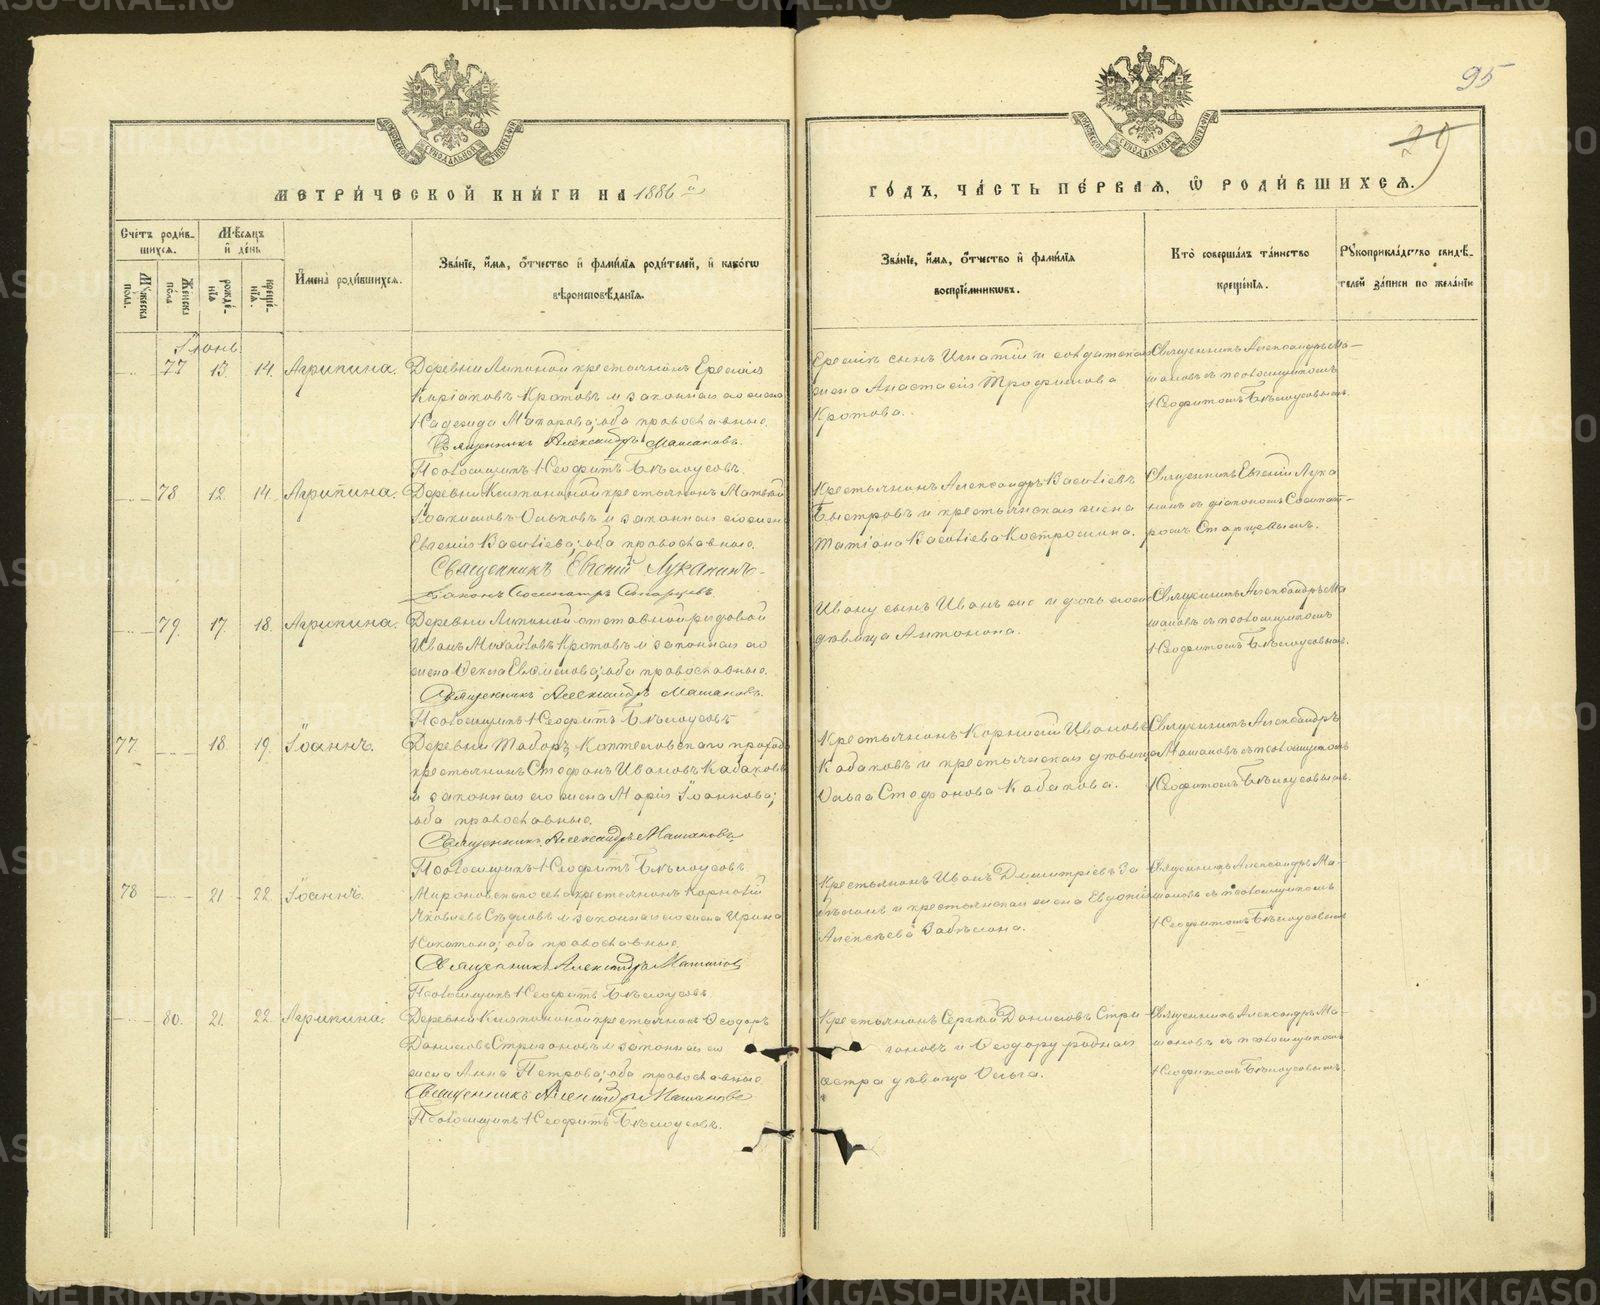 95
29
МОСКОВСКОЙ СѴНОДАЛЬНОЙ ТИПОГРАФІИ
МЕТРИ́ЧЕСКОЙ КНИ́ГИ НА 1886й
ГО́ДЪ, ЧА́СТЬ ПЕ́РВАЯ, Ѿ РОДИ́ВШИХСЯ.
Сче́тъ роди́в-
шихся.
Мѣсяцъ
и де́нь
Му́жеска
пола.
Же́нска
по́ла
рожде́-
нїя
креще́-
нїя.
И́мена̀ роди́вшихся.
Зва́нїе, и́мя, о́тчество и фами́лїя роди́телей, и како́гѡ
вѣроисповѣ́данїя.
Зва́нїе, и́мя, о́тчество и фами́лїя
воспрїе́мникѡвъ.
Кто̀ соверша́лъ та́инство
креще́нїя.
Рꙋкоприкла́дство свидѣ́-
телей за́писи по жела́нїю
Іюнь
77 13. 14. Агрипина.
Деревни Липиной крестьянинъ Еремій
Киріаковъ Кротовъ и законная его жена
Надежда Макарова; оба православные.
Священникъ Александръ Машановъ.
Псаломщикъ Неофитъ Бѣлоусовъ.
Еремія сынъ Игнатій и солдатская
жена Анастасія Трофимова
Кротова.
Священникъ Александръ Ма-
шановъ съ псаломщикомъ
Неофитомъ Бѣлоусовымъ.
78 12. 14. Агрипина.
крестьянинъ Матвей
Іоакимовъ и законная его жена
Евгенія Васильева; оба православные.
Священникъ Евгеній Луканинъ
Діаконъ Сосипатръ Старцевъ
Крестьянинъ Александръ Васильевъ
Быстровъ и крестьянская жена
Татіана Васильева Костромина.
Священникъ Евгеній Лука
нинъ съ діакономъ Сосипат-
ромъ Старцевымъ.
79. 17. 18. Агрипина.
Деревни Липиной отставной рядовой
Иванъ Михайловъ Кротовъ и законная его
жена Евфимова; оба православные.
Священникъ Александръ Машановъ.
Псаломщикъ Неофитъ Бѣлоусовъ
сынъ Иванъ и дочь его
дѣвица Антонина.
Священникъ Александръ Ма
шановъ съ псаломщикомъ
Неофитомъ Бѣлоусовымъ.
77. 18. 19. Іоаннъ.
Деревни Таборъ прихода
крестьянинъ Стефанъ Ивановъ Кабаковъ
и законная его жена Марія Іоаннова;
оба православные.
Священникъ Александръ Машановъ
Псаломщикъ Неофитъ Бѣлоусовъ.
Крестьянинъ Корнилій Ивановъ
Кабаковъ и крестьянская дѣвица
Ольга Стефанова Кабакова.
Священникъ Александръ
Машановъ съ псаломщикомъ
Неофитомъ Бѣлоусовымъ.
78 21 22. Іоаннъ.
Мироновскаго села крестьянинъ Корнилій
Яковлевъ и законная его жена Ирина
Никитина; оба православные.
Священникъ Александръ Машановъ
Псаломщикъ Неофитъ Бѣлоусовъ.
Крестьянинъ Иванъ Димитріевъ За
бѣлинъ и крестьянская жена Евдокія
Алексѣева Забѣлина.
Священникъ Александръ Ма-
шановъ съ псаломщикомъ
Неофитомъ Бѣлоусовымъ
80. 21. 22. Агрипина.
крестьянинъ Ѳеодоръ
Даниловъ Стригановъ и законная его
жена Анна Петрова; оба православные
Священникъ Александръ Машановъ
Псаломщикъ Неофитъ Бѣлоусовъ.
Крестьянинъ Сергій Даниловъ Стри
гановъ и Ѳеодору родная
сестра дѣвица Ольга.
Священникъ Александръ Ма-
шановъ съ псаломщикомъ
Неофитомъ Бѣлоусовымъ.
METRIKI.GASO-URAL.RU